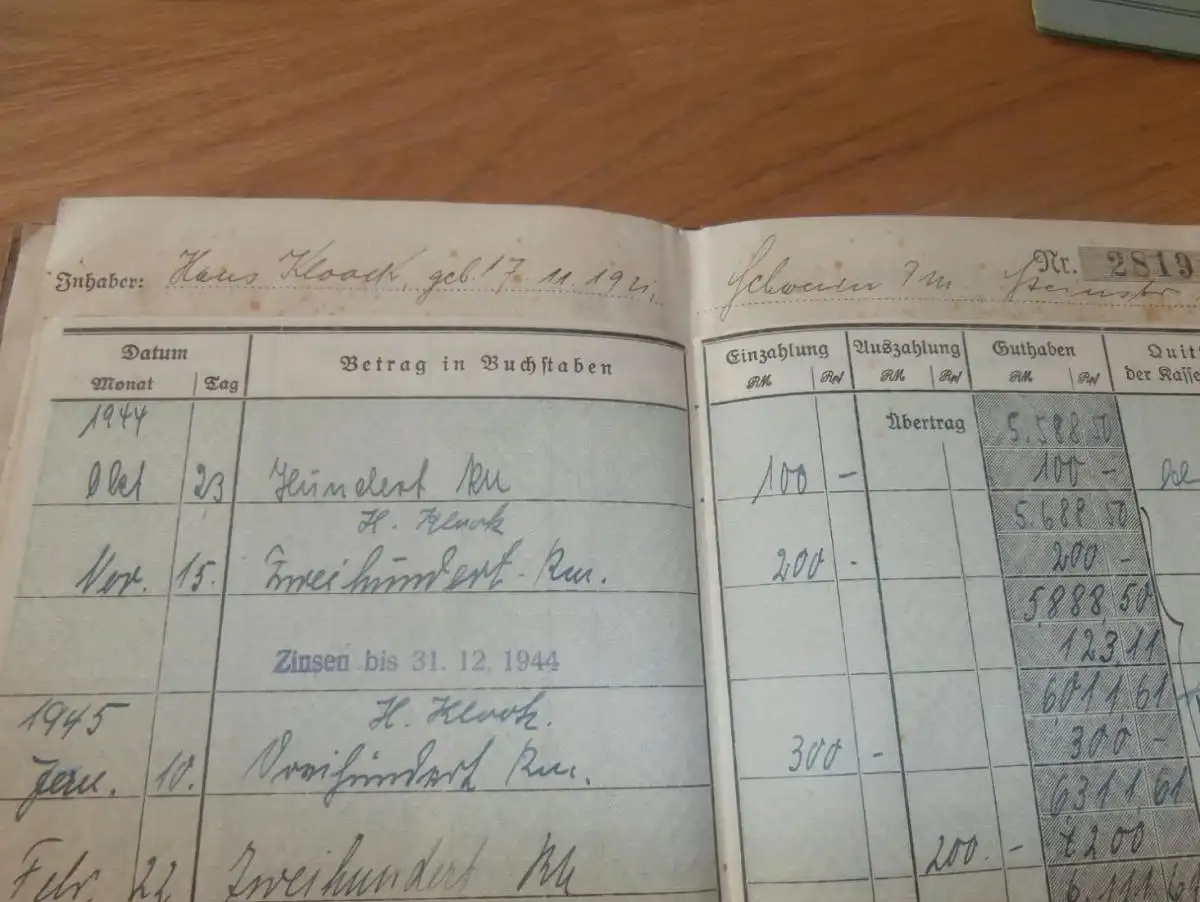 Inhaber: Hans Kloock, geb. 17. 11. 19 Schwerin i m Steinstr Nr. 2819
Datum Betrag in Buchstaben Einzahlung Auszahlung Guthaben Quit
Monat Tag RM Rpf RM Rpf RM Rpf der Kasse
1944 Übertrag 5.588 50
Okt 23 Hundert RM 100 - 100 -
H. Kloock 5.688 50
Nov. 15. Zweihundert Rm. 200 - 200 -
5.888,50
Zinsen bis 31. 12. 1944 123,11
1945 H. Kloock. 6011 61
Jan. 10. Dreihundert Rm. 300 - 300 -
6311 61
Febr. 22 Zweihundert RM 200. - 200
6.111 61